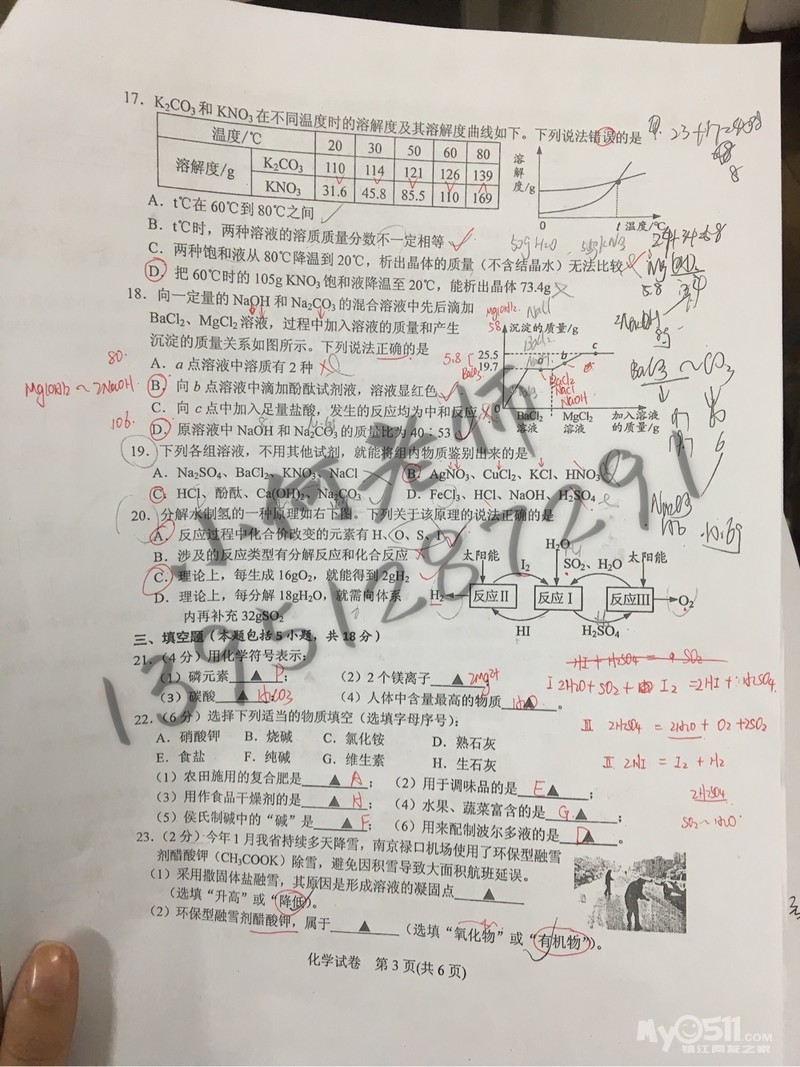 17. K₂CO₃ 和 KNO₃ 在不同温度时的溶解度及其溶解度曲线如下。下列说法错误的是
温度/℃ 20 30 50 60 80
溶解度/g K₂CO₃ 110 114 121 126 139
KNO₃ 31.6 45.8 85.5 110 169
溶解度/g
0 t 温度/℃
A. t℃在 60℃到 80℃之间
B. t℃时，两种溶液的溶质质量分数不一定相等
C. 两种饱和液从 80℃降温到 20℃，析出晶体的质量（不含结晶水）无法比较
D. 把 60℃时的 105g KNO₃ 饱和液降温至 20℃，能析出晶体 73.4g
18. 向一定量的 NaOH 和 Na₂CO₃ 的混合溶液中先后滴加
BaCl₂、MgCl₂ 溶液，过程中加入溶液的质量和产生
沉淀的质量关系如图所示。下列说法正确的是
沉淀的质量/g
25.5
19.7
a b c
0 BaCl₂溶液 MgCl₂溶液 加入溶液的质量/g
5.8
80.
Mg(OH)₂ ~ 2NaOH
106.
A. a 点溶液中溶质有 2 种
B. 向 b 点溶液中滴加酚酞试剂液，溶液显红色
C. 向 c 点中加入足量盐酸，发生的反应均为中和反应
D. 原溶液中 NaOH 和 Na₂CO₃ 的质量比为 40∶53
BaCl₂
NaCl
NaOH
19. 下列各组溶液，不用其他试剂，就能将组内物质鉴别出来的是
A. Na₂SO₄、BaCl₂、KNO₃、NaCl B. AgNO₃、CuCl₂、KCl、HNO₃
C. HCl、酚酞、Ca(OH)₂、Na₂CO₃ D. FeCl₃、HCl、NaOH、H₂SO₄
20. 分解水制氢的一种原理如右下图。下列关于该原理的说法正确的是
A. 反应过程中化合价改变的元素有 H、O、S、I
B. 涉及的反应类型有分解反应和化合反应
C. 理论上，每生成 16gO₂，就能得到 2gH₂
D. 理论上，每分解 18gH₂O，就需向体系
内再补充 32gSO₂
太阳能 I₂ H₂O SO₂、H₂O 太阳能
H₂ 反应Ⅱ 反应Ⅰ 反应Ⅲ O₂
HI H₂SO₄
三、填空题（本题包括 5 小题，共 18 分）
21. （4 分）用化学符号表示：
（1）磷元素 ▲ P； （2）2 个镁离子 ▲ 2Mg²⁺；
（3）碳酸 ▲ H₂CO₃ （4）人体中含量最高的物质 H₂O ▲ 。
Ⅰ 2H₂O + SO₂ + I₂ = 2HI + H₂SO₄
Ⅲ 2H₂SO₄ = 2H₂O + O₂ + 2SO₂
Ⅱ 2HI = I₂ + H₂
2H₂SO₄
SO₂ ~ H₂O
22. （6 分）选择下列适当的物质填空（选填字母序号）：
A. 硝酸钾 B. 烧碱 C. 氯化铵 D. 熟石灰
E. 食盐 F. 纯碱 G. 维生素 H. 生石灰
（1）农田施用的复合肥是 ▲ A ； （2）用于调味品的是 E ▲ ；
（3）用作食品干燥剂的是 ▲ H ； （4）水果、蔬菜富含的是 G ▲ ；
（5）侯氏制碱中的“碱”是 ▲ F ； （6）用来配制波尔多液的是 D ▲ 。
23. （2 分）今年 1 月我省持续多天降雪，南京禄口机场使用了环保型融雪
剂醋酸钾（CH₃COOK）除雪，避免因积雪导致大面积航班延误。
（1）采用撒固体盐融雪，其原因是形成溶液的凝固点 ▲
（选填“升高”或“降低”）。
（2）环保型融雪剂醋酸钾，属于 ▲ （选填“氧化物”或“有机物”）。
化学试卷 第 3 页(共 6 页)
小何老师
13951287291
My0511.COM
镇江网友之家